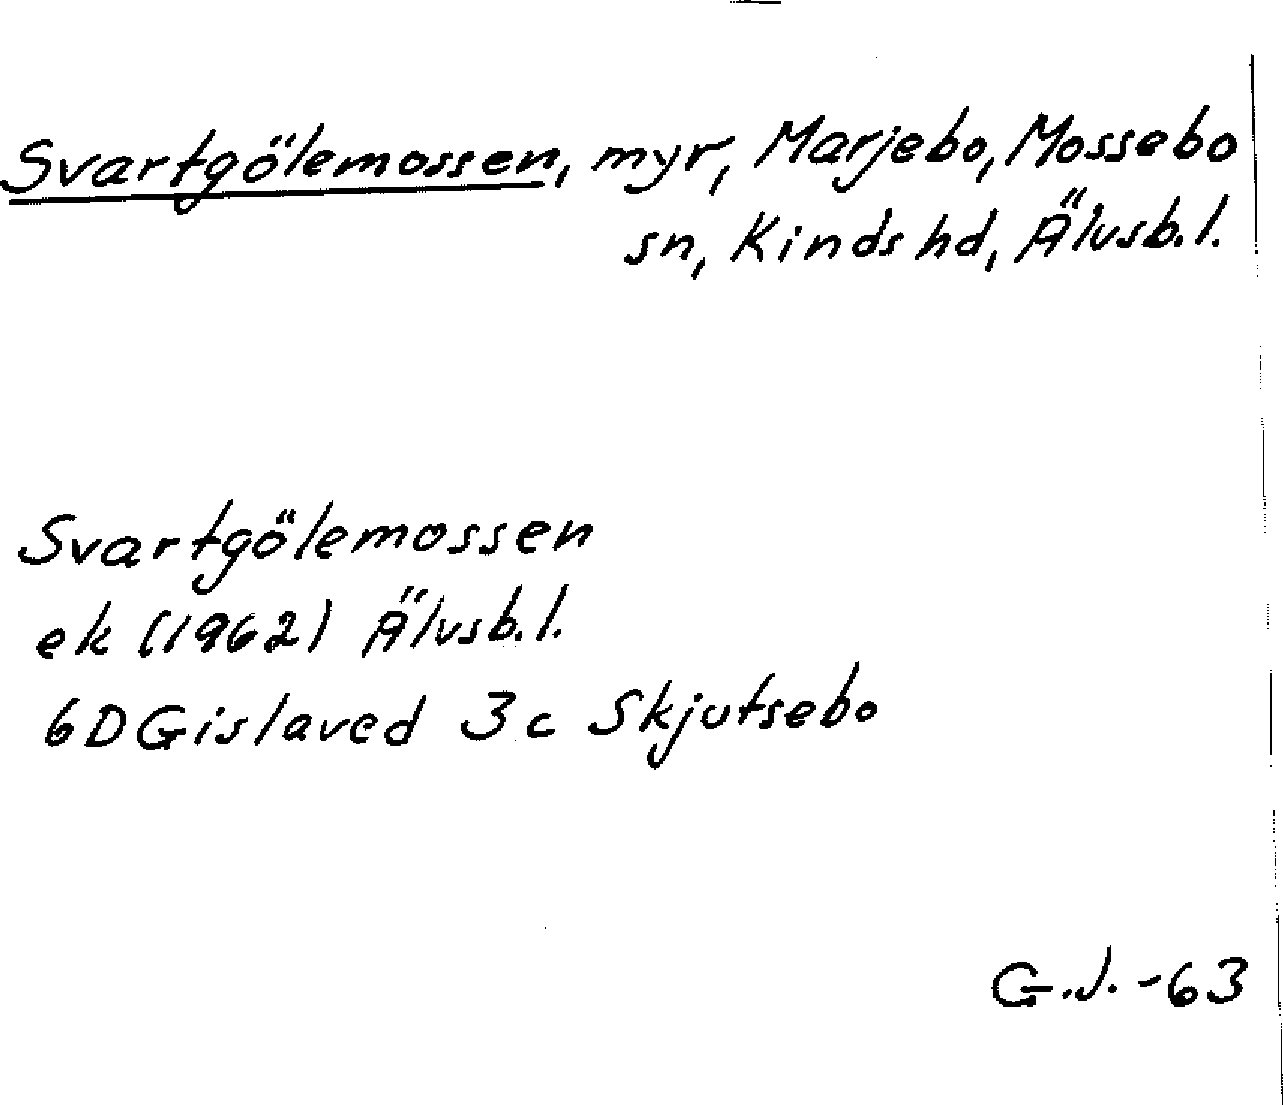 Svartgölemossen, myr, Marjebo, Mossebo
sn, Kinds hd, Älvsb.l.
Svartgölemossen
ek (1962) Älvsb.l.
6D Gislaved 3c Skjutsebo
G.J. -63